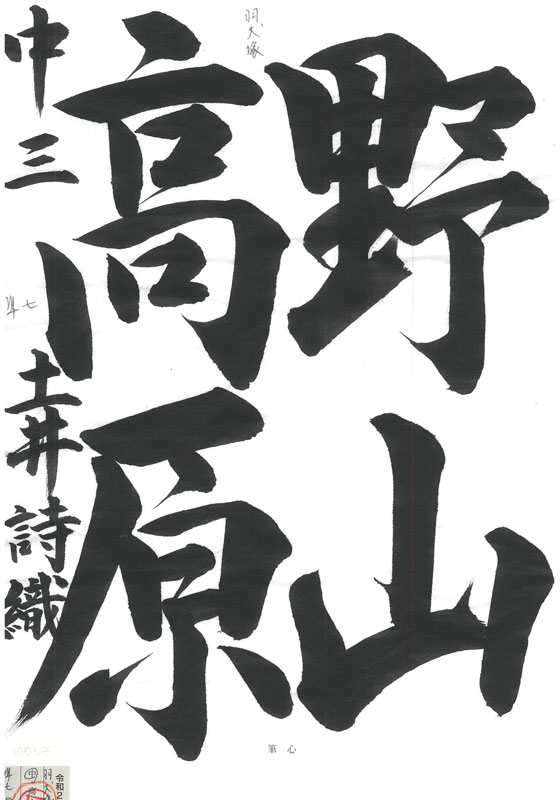 野山
高原
中三
準七
土井詩織
羽犬塚
筆心
令和2